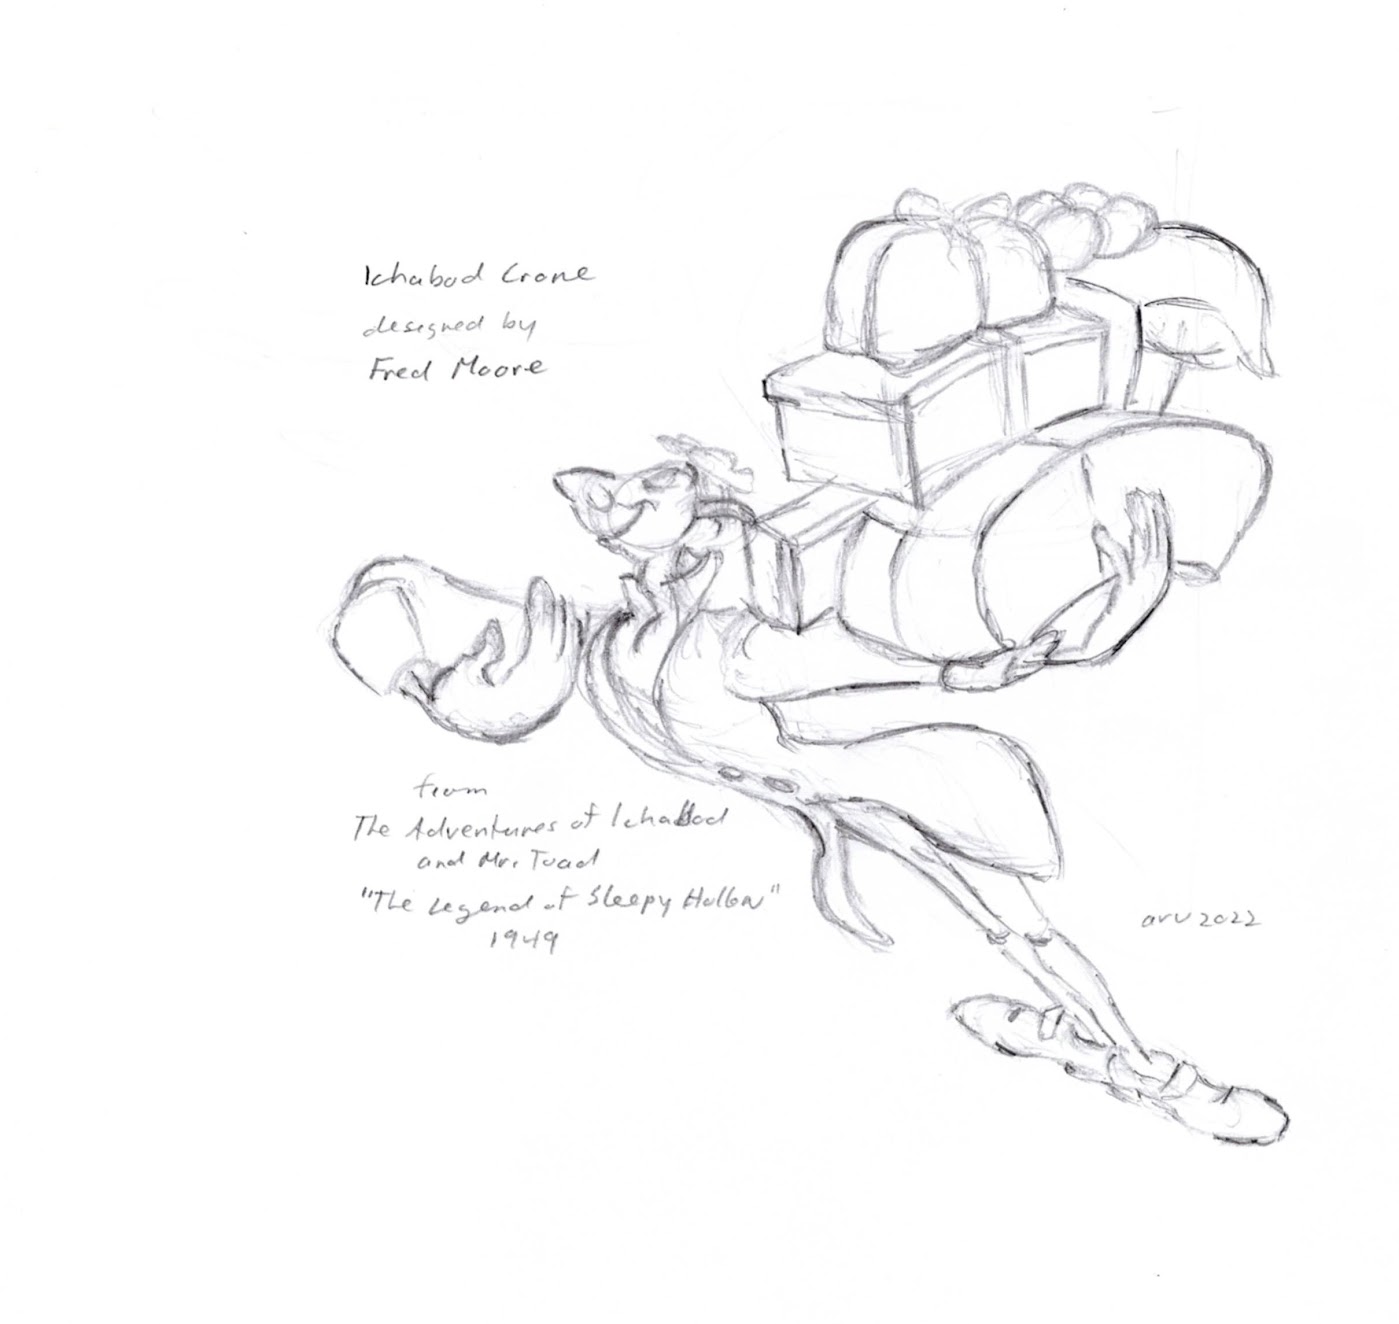 Ichabod Crane
designed by
Fred Moore
from
The Adventures of Ichabod
and Mr. Toad
"The Legend of Sleepy Hollow"
1949
arv 2022